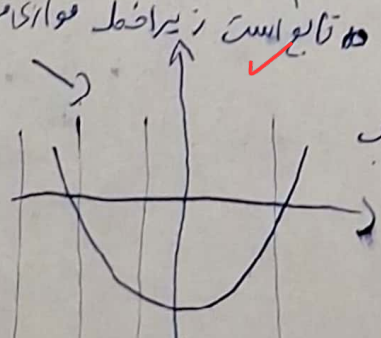 تابع است زیرا خط موازی
ب